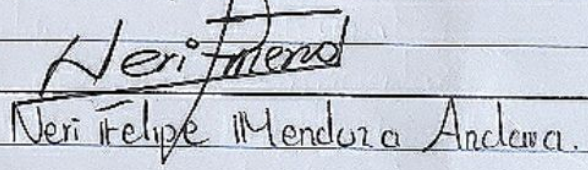 Neri Fmend
Neri Felipe Mendoza Andara.